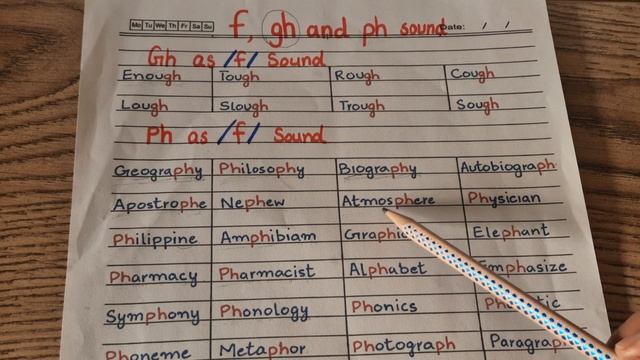 Mo Tu We Th Fr Sa Su f, gh and ph sound Date: / /
Gh as /f/ Sound
Enough Tough Rough Cough
Laugh Slough Trough Sough
Ph as /f/ Sound
Geography Philosophy Biography Autobiograph
Apostrophe Nephew Atmosphere Physician
Philippine Amphibiam Graphic Elephant
Pharmacy Pharmacist Alphabet Emphasize
Symphony Phonology Phonics
Phoneme Metaphor Photograph